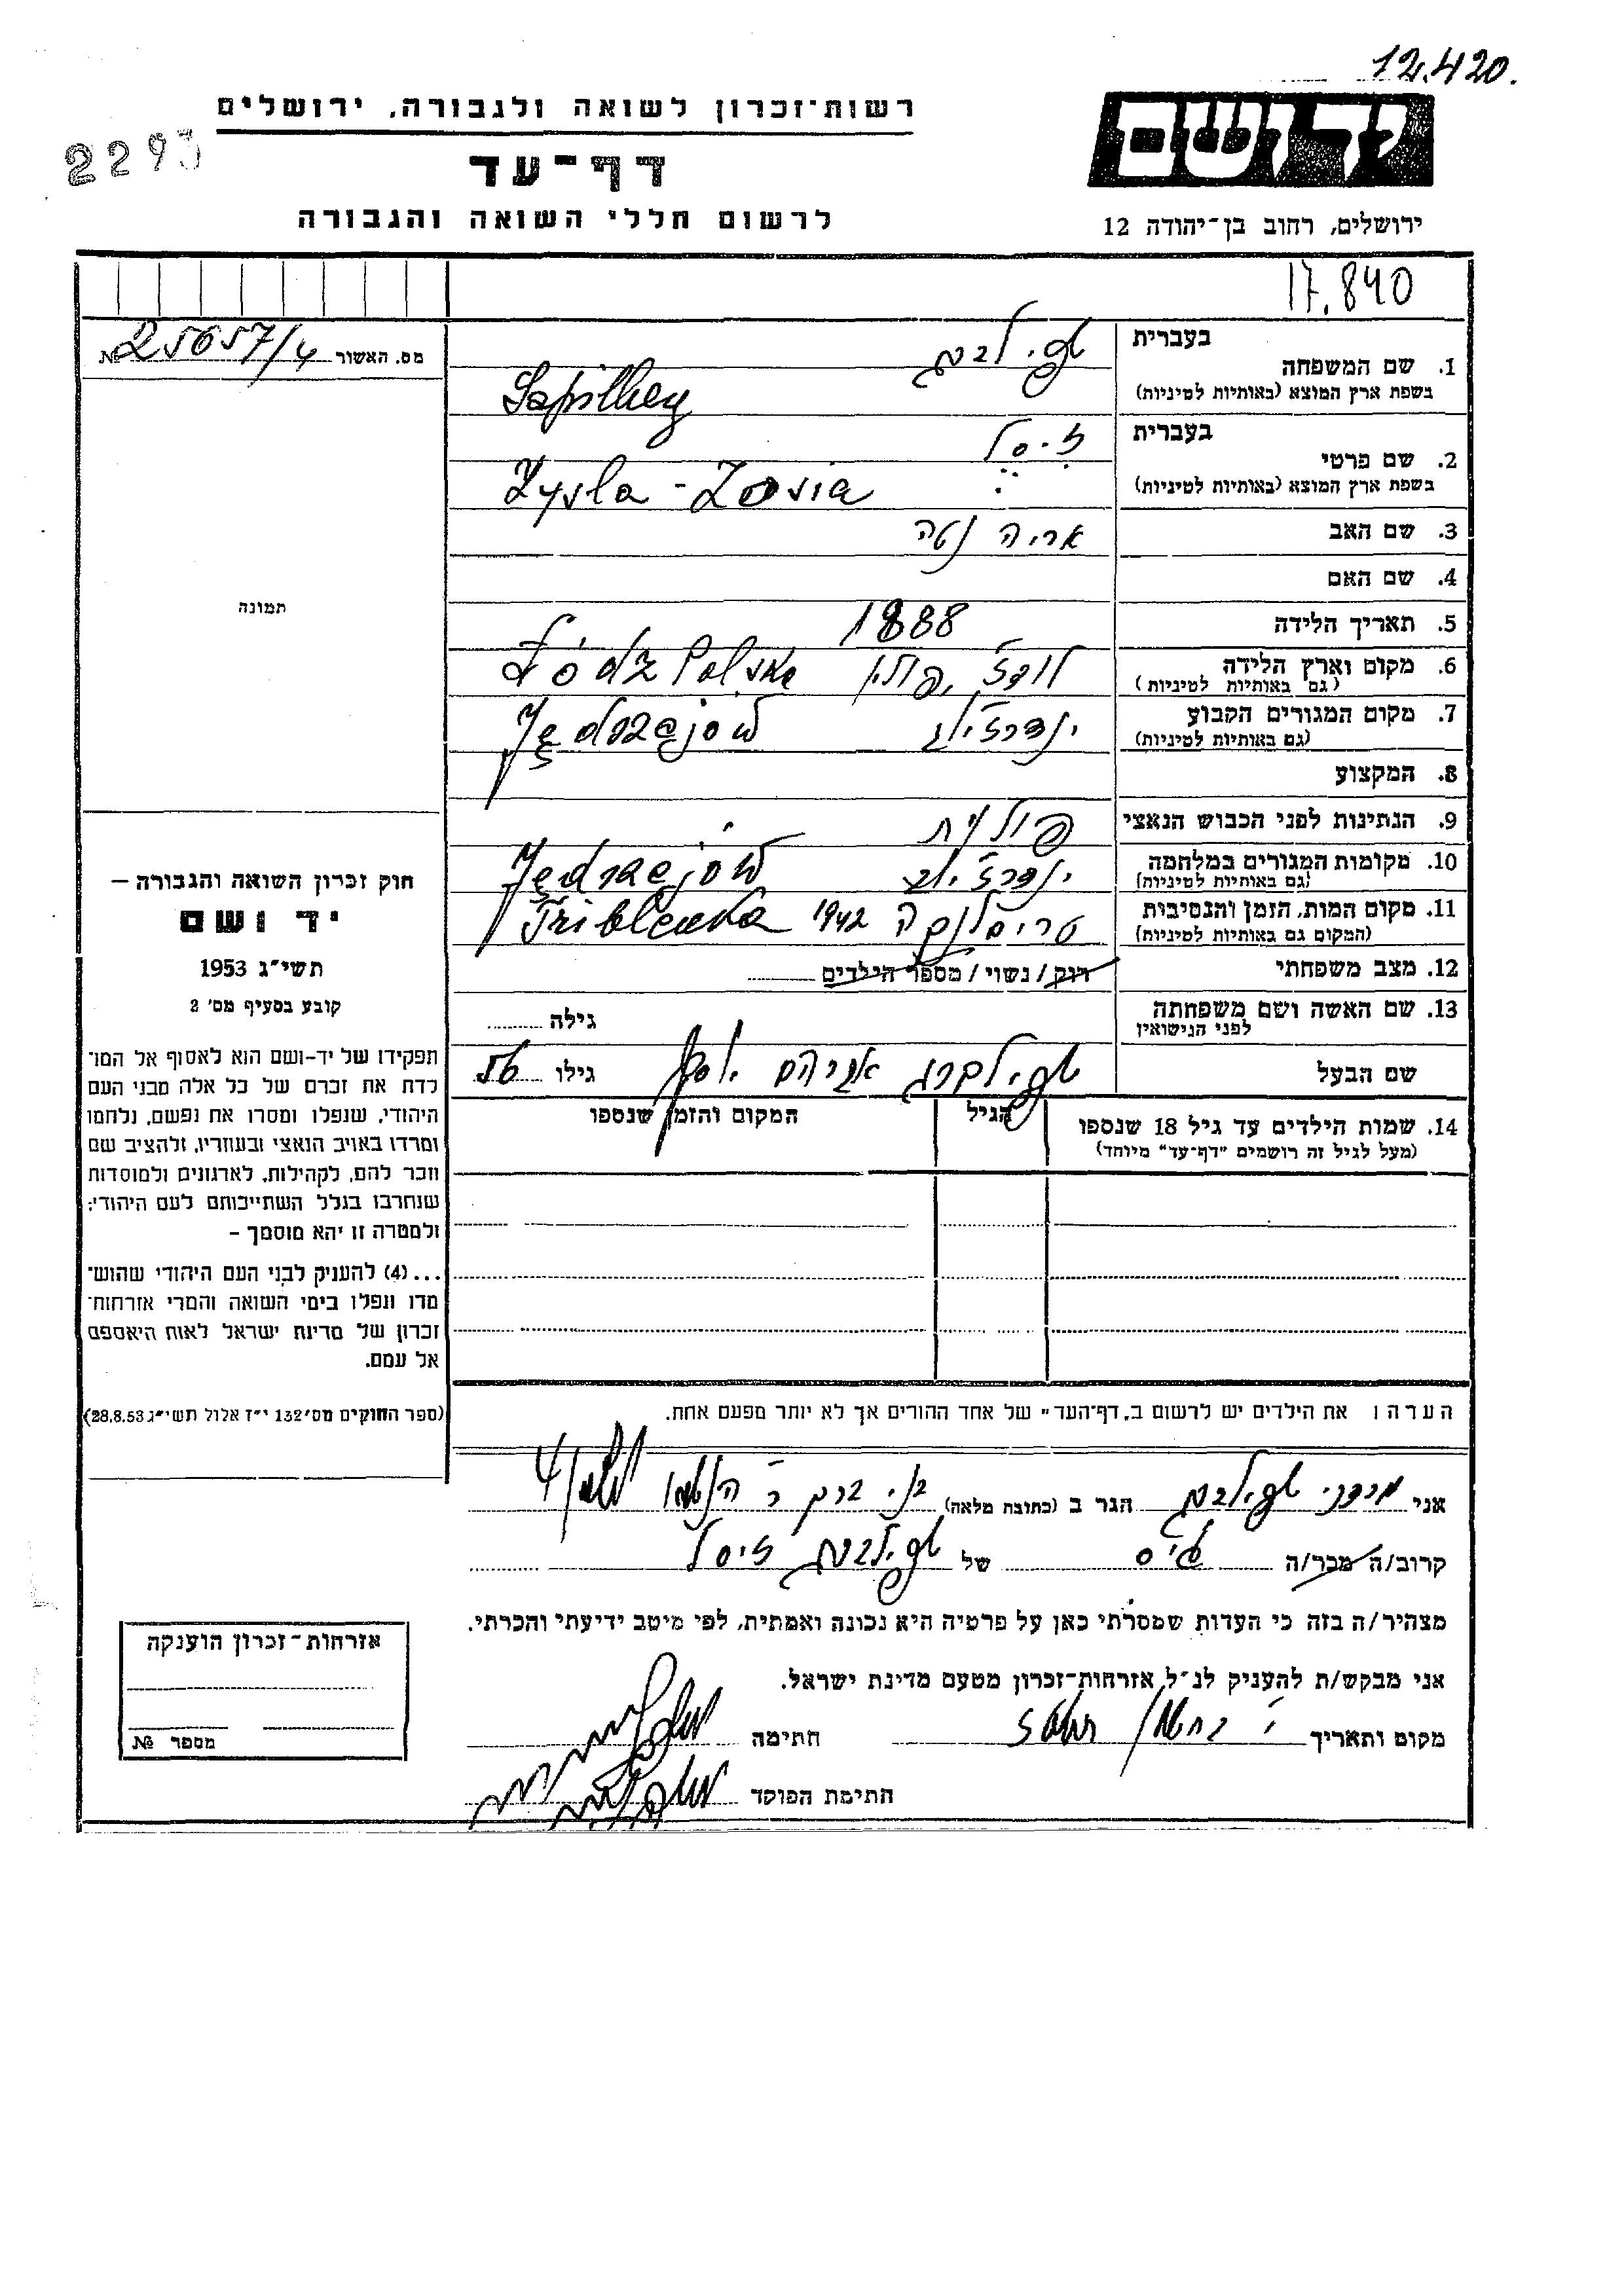 12.420.
רשות-זכרון לשואה ולגבורה, ירושלים
2293
דף-עד
לרשום חללי השואה והגבורה
ידושם
ירושלים, רחוב בן-יהודה 12
17.840
מס. האשור № 25657/4
בעברית
1. שם המשפחה
בשפת ארץ המוצא (באותיות לטיניות)
בעברית
2. שם פרטי זיסל
בשפת ארץ המוצא (באותיות לטיניות) Zysla - Zosia
3. שם האב אריה נטה
4. שם האם
תמונה
5. תאריך הלידה 1888
6. מקום וארץ הלידה לודז' פולין Łódz Polska
(גם באותיות לטיניות)
7. מקום המגורים הקבוע ינדרז'וב Jędrzejów
(גם באותיות לטיניות)
8. המקצוע
9. הנתינות לפני הכבוש הנאצי פולנית
10. מקומות המגורים במלחמה ינדרז'וב Jędrzejów
(גם באותיות לטיניות)
11. מקום המות, הזמן והנסיבות טריבלנקה 1942 Triblenka
(המקום גם באותיות לטיניות)
12. מצב משפחתי רוק/נשוי/מספר הילדים
13. שם האשה ושם משפחתה גילה
לפני הנישואין
שם הבעל שפילברג אברהם יוסף גילו 56
14. שמות הילדים עד גיל 18 שנספו הגיל המקום והזמן שנספו
(מעל לגיל זה רושמים "דף-עד" מיוחד)
חוק זכרון השואה והגבורה –
יד ושם
תשי"ג 1953
קובע בסעיף מס' 2
תפקידו של יד-ושם הוא לאסוף אל המו־
לדת את זכרם של כל אלה מבני העם
היהודי, שנפלו ומסרו את נפשם, נלחמו
ומרדו באויב הנאצי ובעוזריו, ולהציב שם
וזכר להם, לקהילות, לארגונים ולמוסדות
שנחרבו בגלל השתייכותם לעם היהודי;
ולמטרה זו יהא מוסמך –
...(4) להעניק לבני העם היהודי שהוש־
מדו ונפלו בימי השואה והמרי אזרחות־
זכרון של מדינת ישראל לאות היאספם
אל עמם.
(ספר החוקים מס' 132 י"ז אלול תשי"ג 28.8.53)
הערה: את הילדים יש לרשום ב"דף-העד" של אחד ההורים אך לא יותר מפעם אחת.
אני מרדכי הגר ב (כתובת מלאה) בני ברק ר'
קרוב/ה מכר/ה גיס של זיסל
מצהיר/ה בזה כי העדות שמסרתי כאן על פרטיה היא נכונה ואמתית, לפי מיטב ידיעתי והכרתי.
אני מבקש/ת להעניק לנ"ל אזרחות-זכרון מטעם מדינת ישראל.
מקום ותאריך חתימה
חתימת הפוקד
אזרחות-זכרון הוענקה
מספר №